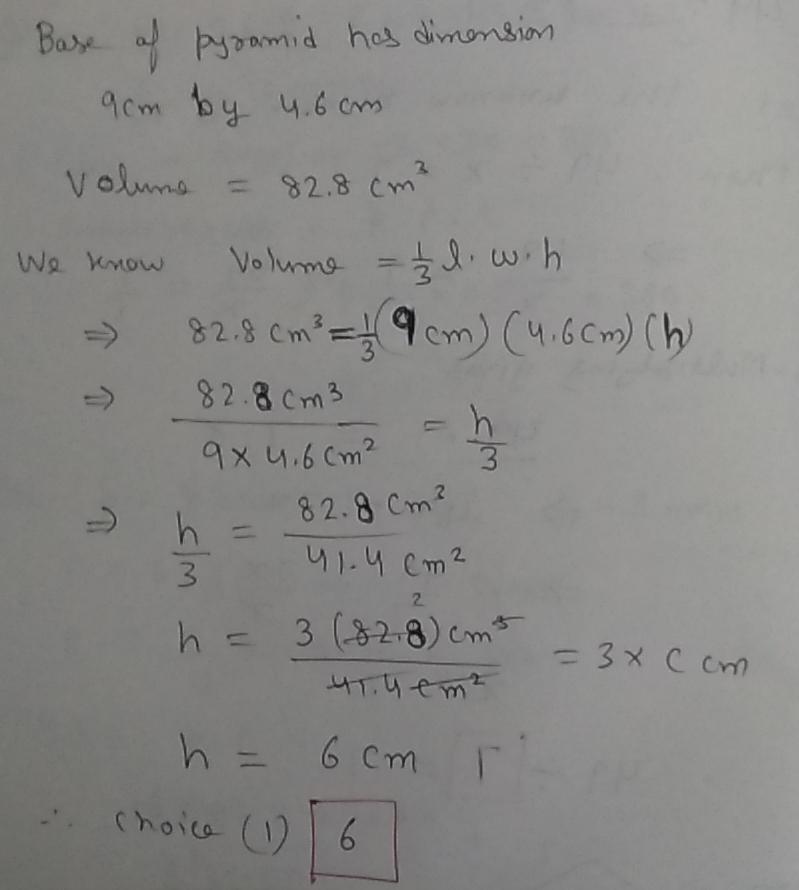 Base of pyramid has dimension
9cm by 4.6 cm
Volume = 82.8 cm³
We know Volume = 1/3 l. w. h
⇒ 82.8 cm³ = 1/3 (9 cm) (4.6 cm) (h)
⇒ 82.8 cm³ / 9 x 4.6 cm² = h/3
⇒ h/3 = 82.8 cm³ / 41.4 cm²
2
h = 3 (82.8) cm³ / 41.4 cm² = 3 x c cm
h = 6 cm
∴ choice (1) 6